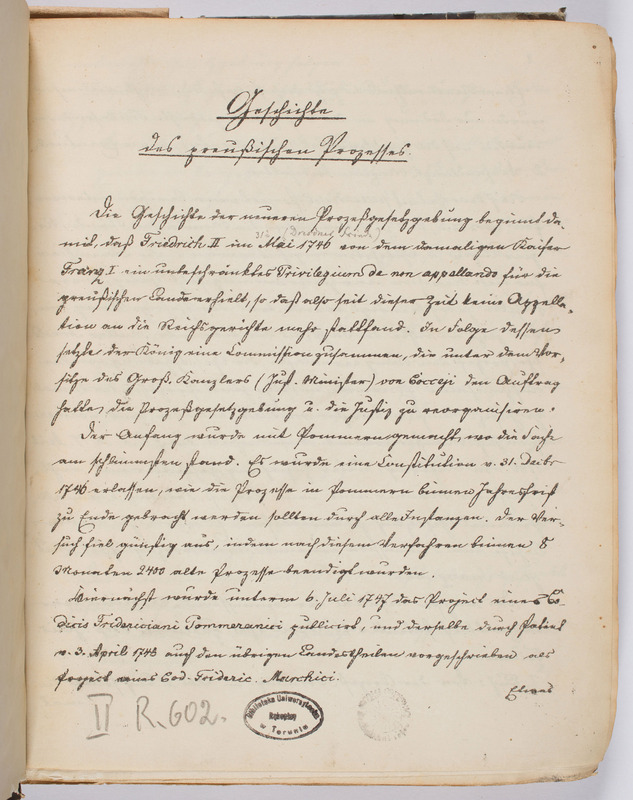 Geschichte
des preußischen Prozesses.
Die Geschichte der neueren Prozeßgesetzgebung beginnt da-
31/ (Dresdener Friede)
mit, daß Friedrich II im Mai 1746 von dem damaligen Kaiser
Franz I ein unbeschränktes Privilegium de non appellando für die
preußischen Lande erhielt, so daß also seit dieser Zeit keine Appella-
tion an die Reichsgerichte mehr stattfand. In Folge dessen
setzte der König eine Commission zusammen, die unter dem Vor-
sitze des Groß-Kanzlers (Just. Minister) von Cocceji den Auftrag
hatte, die Prozeßgesetzgebung u. die Justiz zu reorganisiren.
Der Anfang wurde mit Pommern gemacht, wo die Sache
am schlimmsten stand. Es wurde eine Constitution v. 31. Decbr
1746 erlassen, wie die Prozesse in Pommern binnen Jahresfrist
zu Ende gebracht werden sollten durch alle Instanzen. Der Ver-
such fiel günstig aus, indem nach diesem Verfahren binnen 8
Monaten 2400 alte Prozesse beendigt wurden.
Hiernächst wurde unterm 6. Juli 1747 das Project eines Co-
dicis Fridericiani Pommeranici publicirt, und derselbe durch Patent
v. 3. April 1748 auch den übrigen Landestheilen vorgeschrieben als
Project eines Cod. Frideric. Marchici.
Etwas
II R. 602.
Biblioteka Uniwersytecka
w Toruniu